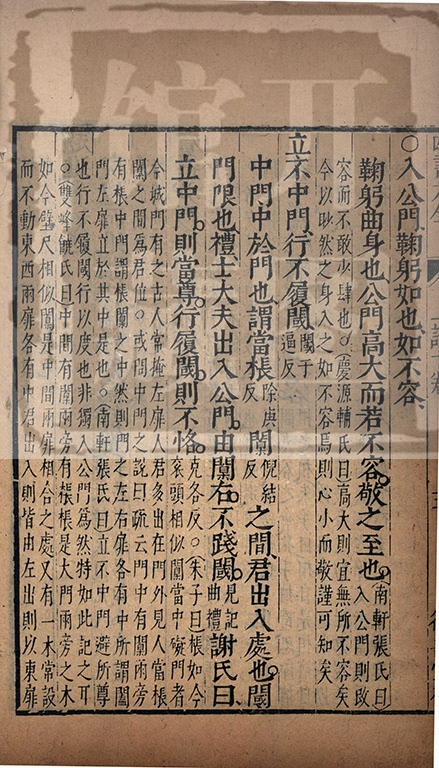 ○入公門鞠躬如也如不容
鞠躬曲身也公門高大而若不容敬之至也
南軒張氏曰入公門則改
容而不敢少肆也○慶源輔氏曰高大則宜無所不容矣
今以眇然之身入之如不容焉則心小而敬謹可知矣
立不中門行不履閾
閾于逼反
中門中於門也謂當棖
除庚反
闑
倪結反
之間君出入處也閾
門限也禮士大夫出入公門由闑右不踐閾
見記曲禮
謝氏曰
立中門則當尊行履閾則不恪
克各反○朱子曰棖如今
衮頭相似闑當中礙門者
今城門有之古人常掩左扉人君多出在門外見人當棖
闑之間為君位○或問中門之說曰疏云門中有闑兩旁
有棖中門謂棖闑之中然則門之左右扉各有中所謂闔
門左扉立於其中是也○南軒張氏曰立不中門避所尊
也行不履閾行以度也非獨入公門為然特如此記之耳
○雙峰饒氏曰中間有闑兩旁有棖棖是大門兩旁之木
如今壁尺相似闑是中間兩扉相合之處又有一木常設
而不動東西兩扉各有中君出入則皆由左出則以東扉